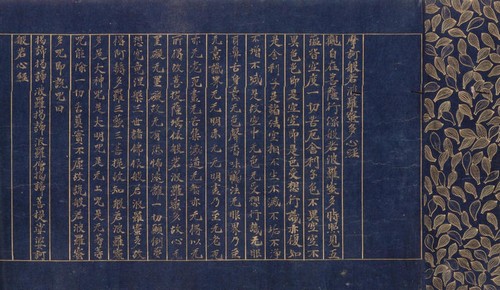 摩訶般若波羅蜜多心經
觀自在菩薩行深般若波羅蜜多時照見五
蘊皆空度一切苦厄舍利子色不異空空不
異色色即是空空即是色受想行識亦復如
是舍利子是諸法空相不生不滅不垢不淨
不增不減是故空中无色无受想行識无眼
耳鼻舌身意无色聲香味觸法无眼界乃至
无意識界无无明亦无无明盡乃至无老死
亦无老死盡无苦集滅道无智亦无得以无
所得故菩提薩埵依般若波羅蜜多故心无
罣礙无罣礙故无有恐怖遠離一切顛倒夢
想究竟涅槃三世諸佛依般若波羅蜜多故
得阿耨多羅三藐三菩提故知般若波羅蜜多
是大神咒是大明咒是无上咒是无等等
咒能除一切苦真實不虛故說般若波羅蜜
多咒即說咒曰
揭諦揭諦 波羅揭諦 波羅僧揭諦 菩提娑婆訶
般若心經